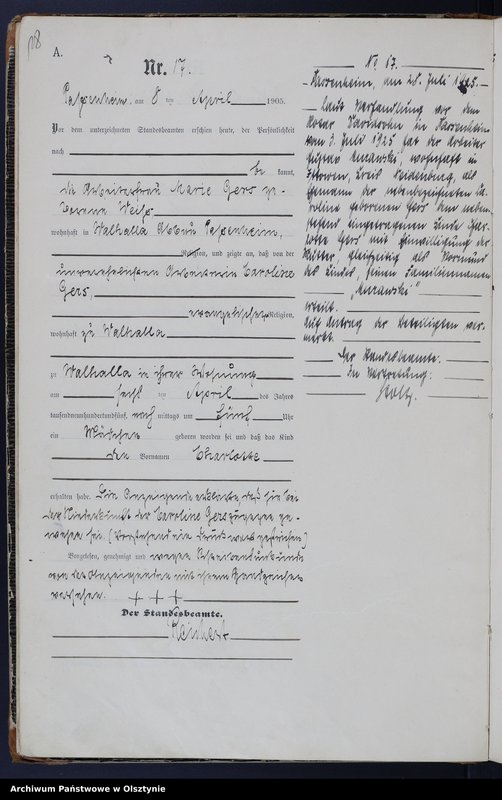 A.
Nr. 17.
Pappenheim, am 8 ten April 1905.
Vor dem unterzeichneten Standesbeamten erschien heute, der Persönlichkeit
nach
be kannt,
die Arbeiterfrau Marie Gers ge-
borene
wohnhaft in Walhalla Abbau
Religion, und zeigte an, daß von der
unverehelichten Arbeiterin Caroline
Gers,
evangelischer Religion,
wohnhaft zu Walhalla
zu Walhalla in ihrer Wohnung
am ten April des Jahres
tausendneunhundertundfünf, nach mittags um fünf Uhr
ein Mädchen geboren worden sei und daß das Kind
den Vornamen Charlotte
erhalten habe. Die Anzeigende erklärte, daß sie bei
der Niederkunft der Caroline Gers zugegen ge-
wesen sei. (Vorstehend ein Druckwort gestrichen)
Vorgelesen, genehmigt und wegen Schreibensunkunde
von der Anzeigenden mit ihrem Handzeichen
versehen. + + +
Der Standesbeamte.
Reichert
No 17.
am 28. Juli
Laut Verhandlung vor dem
Notar in
vom 3. Juli 1925 hat der Arbeiter
Gustav wohnhaft in
Kreis Neidenburg, als
Ehemann der nebenbezeichneten Ca-
roline geborenen Gers dem neben-
stehend eingetragenen Kinde Char-
lotte Gers mit Einwilligung der
Mutter, gleichzeitig als Vormund
des Kindes, seinen Familiennamen
erteilt.
Auf Antrag der Beteiligten ver-
merkt.
Der Standesbeamte.
In Vertretung:
Archiwum Państwowe w Olsztynie